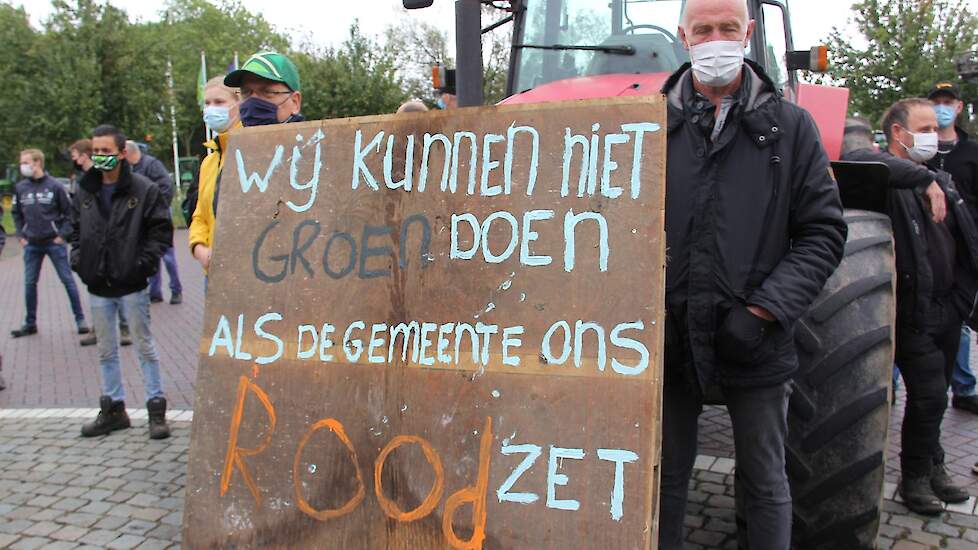 Wij kunnen niet
GROEN DOEN
ALS DE GEMEENTE ONS
ROOd ZET